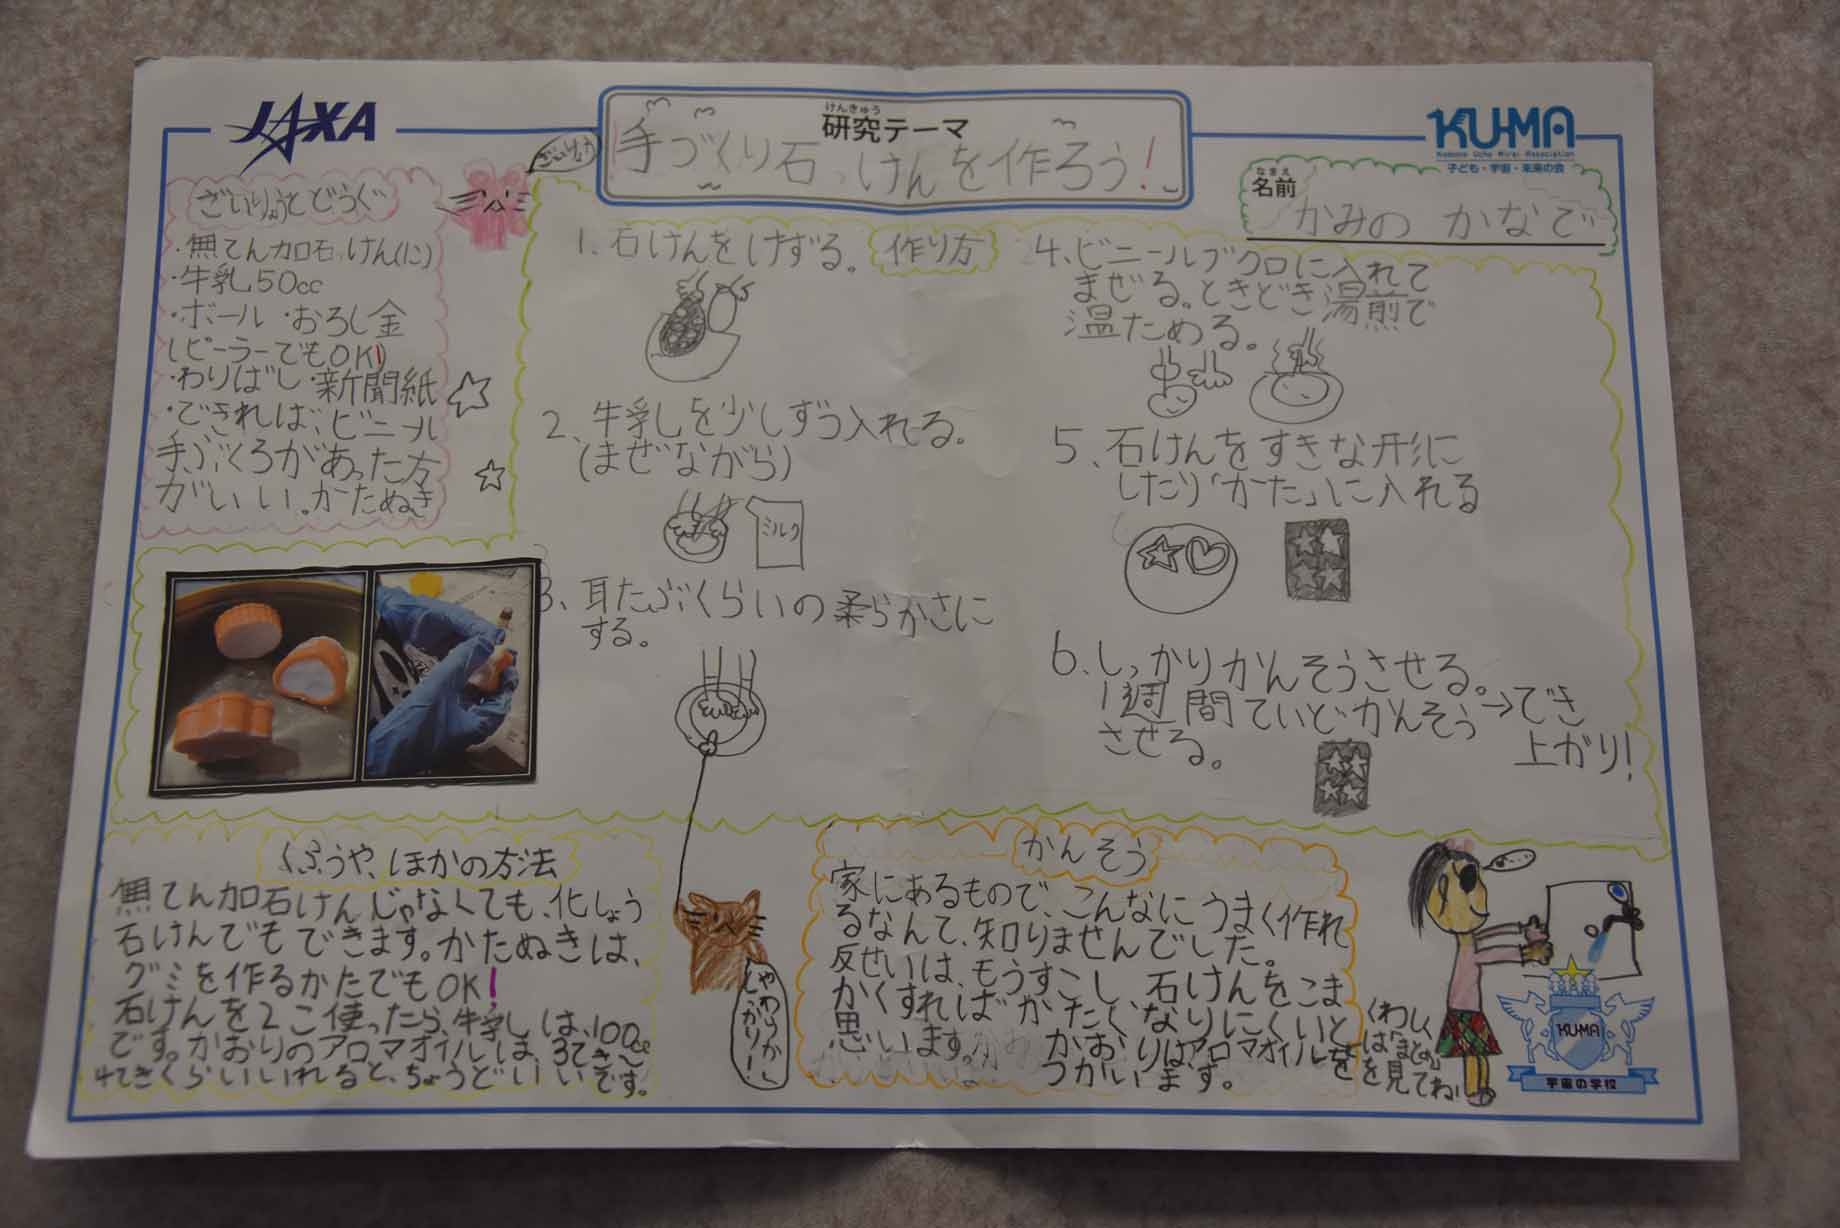 JAXA
けんきゅう
研究テーマ
手づくり石っけんを作ろう！
KU-MA
子ども・宇宙・未来の会
なまえ
名前
かみの かなで
ざいりょうとどうぐ
・無てんカロ石っけん(1こ)
・牛乳50cc
・ボール ・おろし金
(ピーラーでもOK)
・わりばし・新聞紙
・できれば、ビニール
手ぶくろがあった方
がいい。かたぬき
作り方
1. 石けんをけずる。
2、牛乳しを少しずつ入れる。
(まぜながら)
ミルク
3、耳たぶくらいの柔らかさに
する。
4、ビニールブクロに入れて
まぜる。ときどき湯煎で
温ためる。
5、石けんをすきな形に
したり「かた」に入れる
6、しっかりかんそうさせる。
1週間ていどかんそう→でき
させる。
上がり！
くふうや、ほかの方法
無てん加石けんじゃなくても、化しょう
石けんでもできます。かたぬきは、
グミを作るかたでもOK!
石けんを2こ使ったら、牛乳しは、100cc
です。かおりのアロマオイルは、3てき〜
4てきくらいいれると、ちょうどいいです。
やわらか〜
しっかり〜！
かんそう
家にあるもので、こんなにうまく作れ
るなんて、知りませんでした。
反せいは、もうすこし、石けんをこま
かくすればかたくなりにくいと
思います。
かおりはアロマオイルを
つかいます。
くわしく
は「まとめ」
を見てね!
KU-MA
宇宙の学校